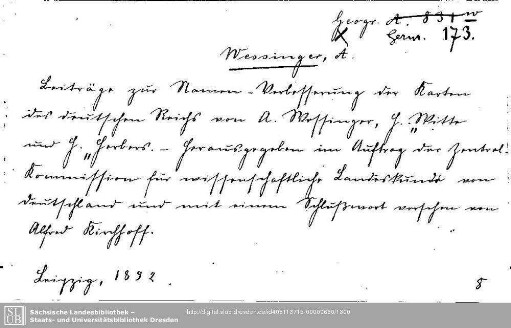 Geogr. A. 831 w
Germ. 173.
Wessinger, A.
Beiträge zur Namen-Verbesserung der Karten
des deutschen Reichs von A. Wessinger, H. Witte
und H. Herbers. – Herausgegeben im Auftrag der Zentral-
Kommission für wissenschaftliche Landeskunde von
Deutschland und mit einem Schlußwort versehen von
Alfred Kirchhoff.
Leipzig, 1892.
8
Sächsische Landesbibliothek –
Staats- und Universitätsbibliothek Dresden